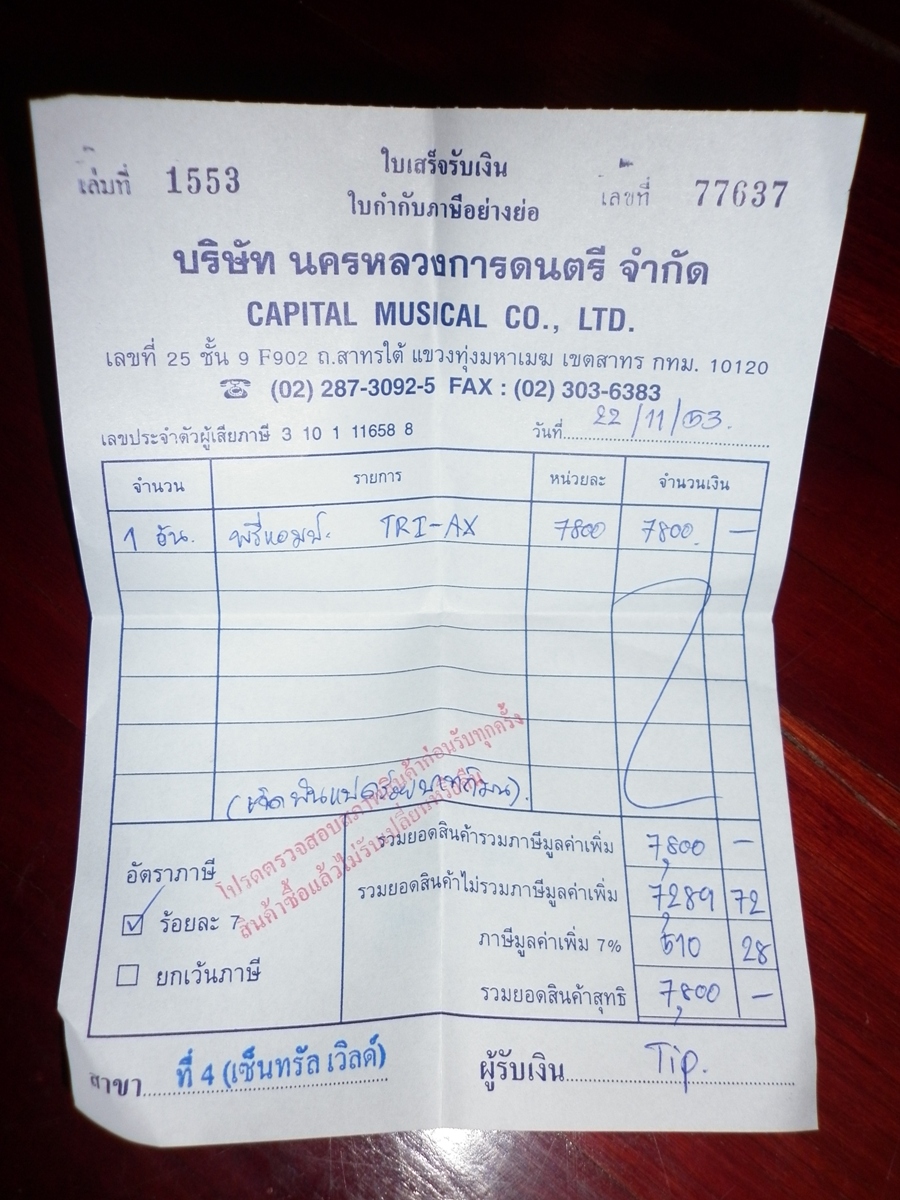 ใบเสร็จรับเงิน
เล่มที่ 1553 เลขที่ 77637
ใบกำกับภาษีอย่างย่อ
บริษัท นครหลวงการดนตรี จำกัด
CAPITAL MUSICAL CO., LTD.
เลขที่ 25 ชั้น 9 F902 ถ.สาทรใต้ แขวงทุ่งมหาเมฆ เขตสาทร กทม. 10120
☎ (02) 287-3092-5 FAX : (02) 303-6383
เลขประจำตัวผู้เสียภาษี 3 10 1 11658 8 วันที่ 22/11/53.
จำนวน รายการ หน่วยละ จำนวนเงิน
1 อัน. พรีแอมป์ TRI-AX 7800 7800 —
โปรดตรวจสอบสภาพสินค้าก่อนรับทุกครั้ง
สินค้าซื้อแล้วไม่รับเปลี่ยนหรือคืน
(เจ็ดพันแปดร้อยบาทถ้วน).
รวมยอดสินค้ารวมภาษีมูลค่าเพิ่ม 7,800 —
อัตราภาษี
รวมยอดสินค้าไม่รวมภาษีมูลค่าเพิ่ม 7,289 72
ร้อยละ 7
ภาษีมูลค่าเพิ่ม 7% 510 28
ยกเว้นภาษี
รวมยอดสินค้าสุทธิ 7,800 —
สาขา ที่ 4 (เซ็นทรัล เวิลด์) ผู้รับเงิน Tip.